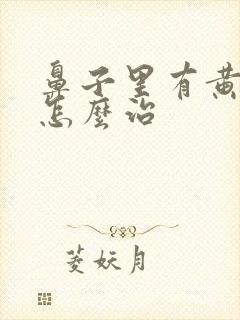 鼻子里有黄
怎麼治
菱妖月